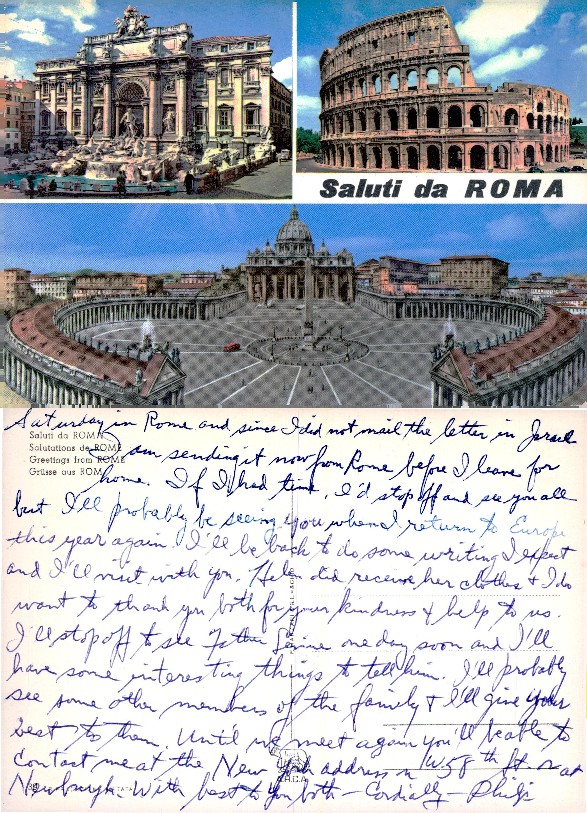 Saluti da ROMA
Saturday in Rome and since I did not mail the letter in Israel
Saluti da ROMA
Salutations de ROME
Greetings from ROME
Grüsse aus ROM
I am sending it now from Rome before I leave for
home. If I had time, I'd stop off and see you all
but I'll probably be seeing you when I return to Europe
this year again. I'll be back to do some writing I expect
and I'll visit with you. Helen did receive her clothes & I do
want to thank you both for your kindness & help to us.
I'll stop off to see Father one day soon and I'll
have some interesting things to tell him. I'll probably
see some other members of the family & I'll give your
best to them. Until we meet again you'll be able to
Contact me at the New York address on W 58th St. or at
Newburgh. With best to you both — Cordially — Philip